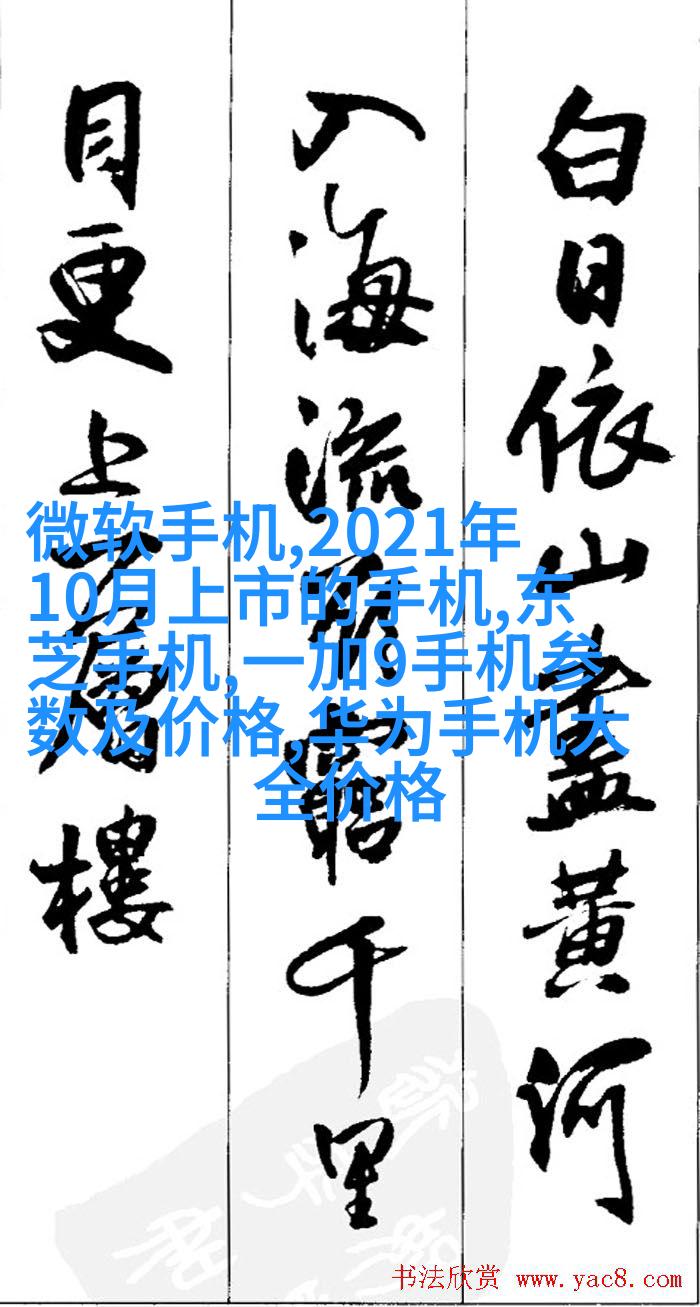 白日依山盡黃河
入海流欲窮千里
目更上一層樓
微软手机,2021年
10月上市的手机,东
芝手机,一加9手机参
数及价格,华为手机大
全价格
书法欣赏 www.yac8.com